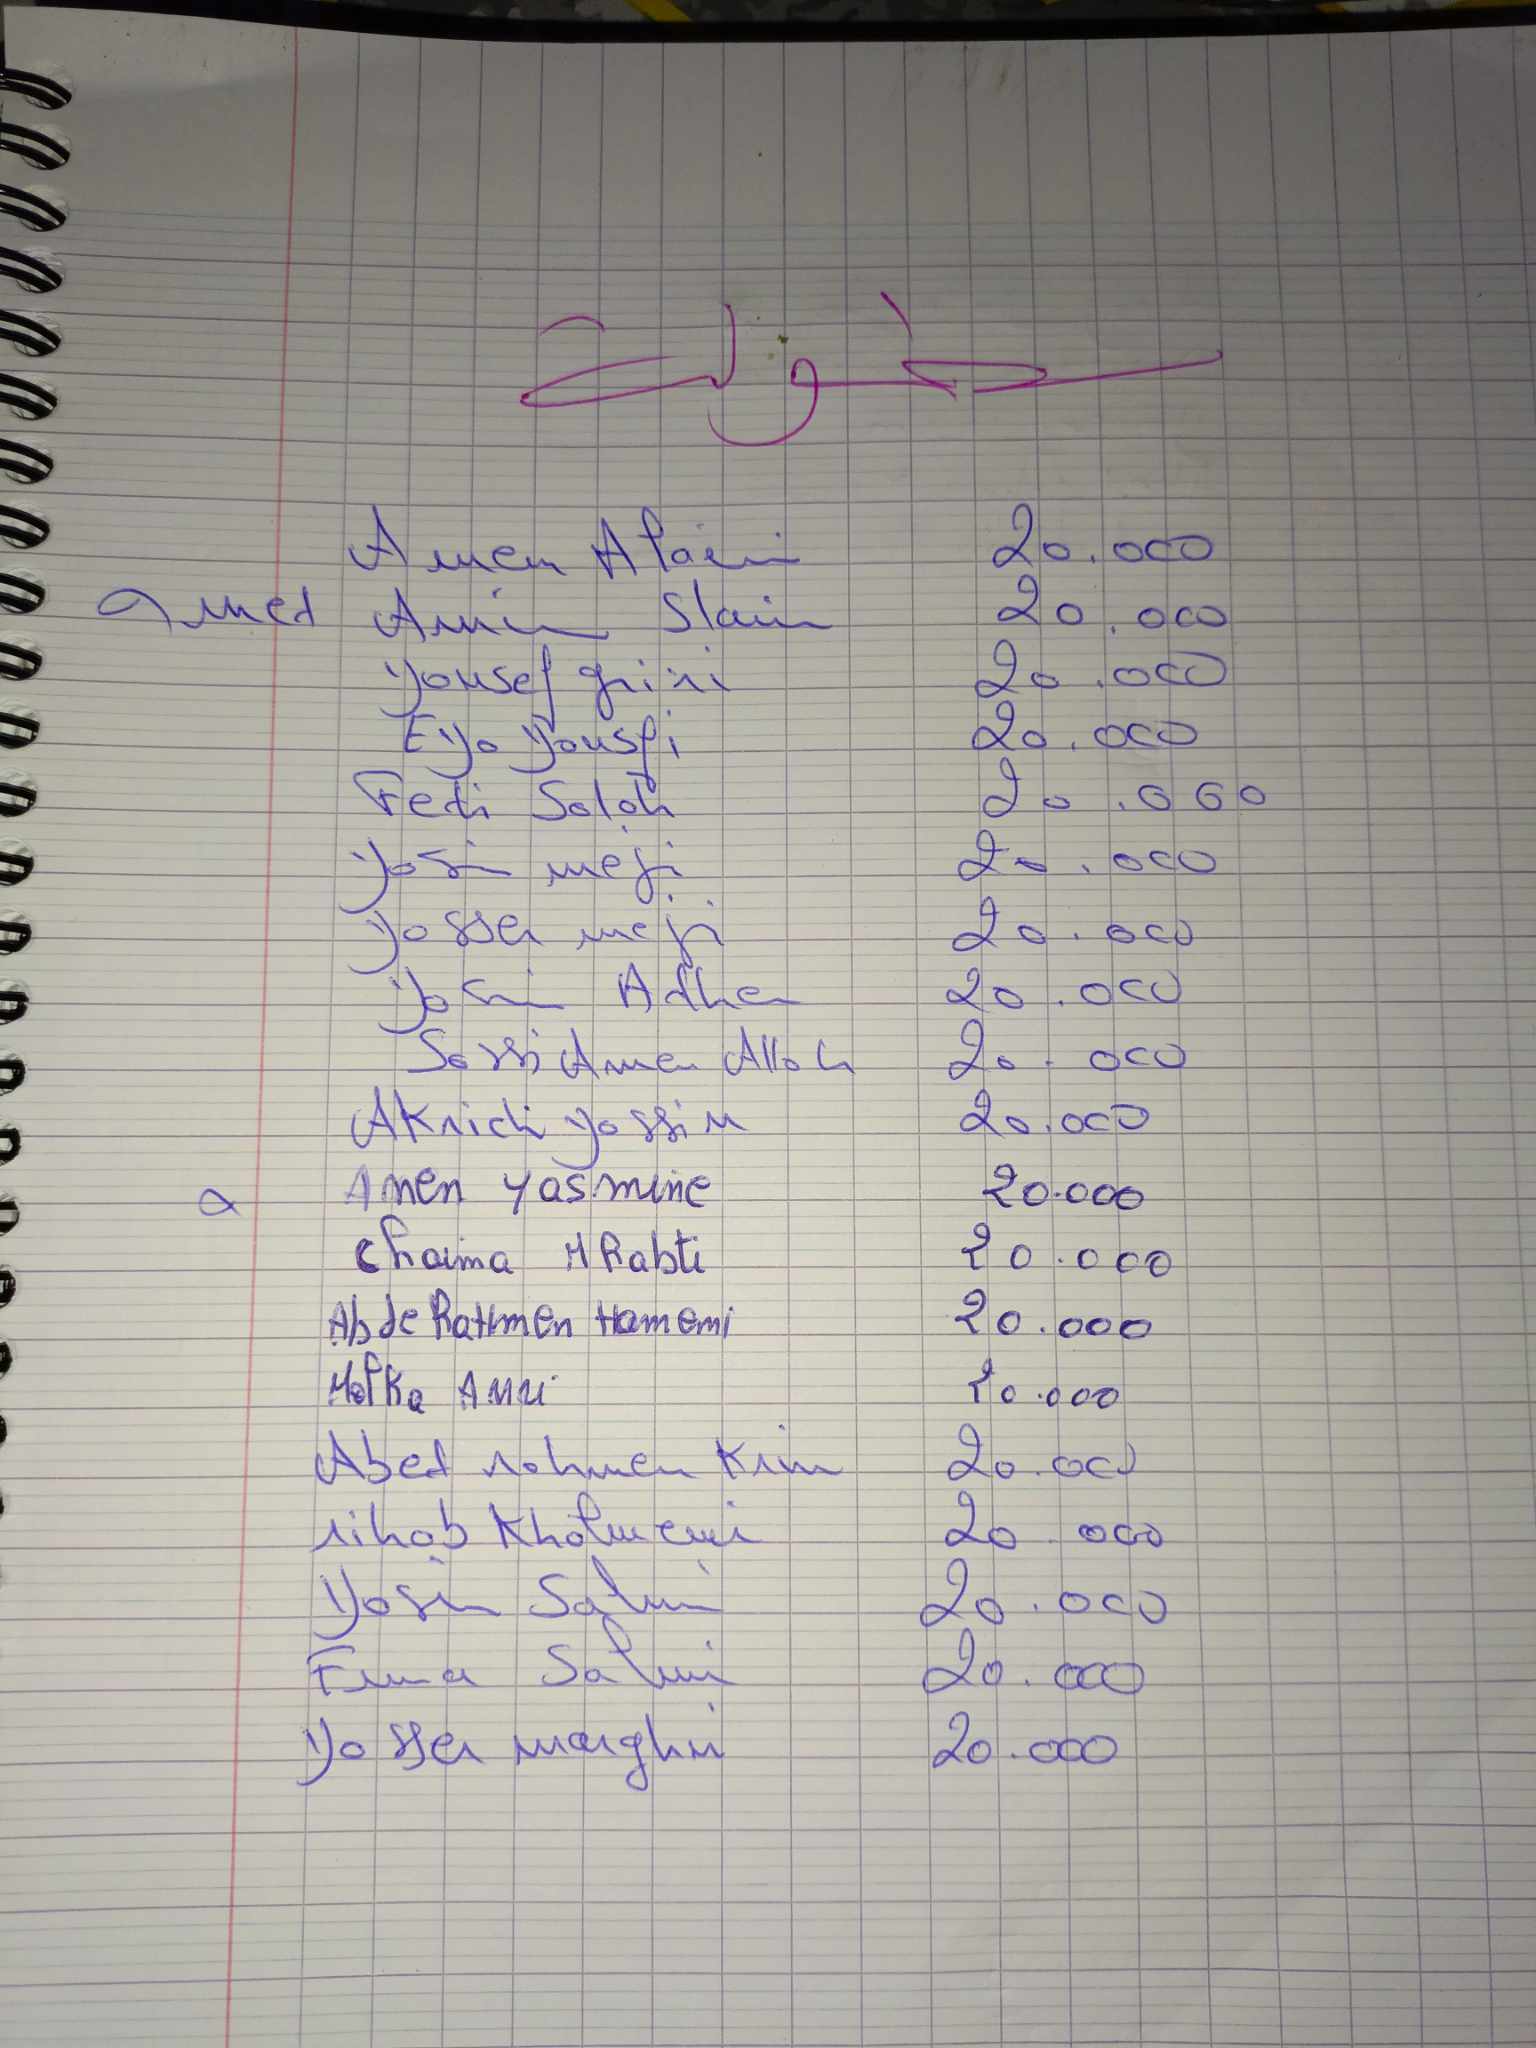 Amen Alaimi 20.000
Amed Amin Slaim 20.000
yousef grini 20.000
Eya yousfi 20.000
Fedi Salah 20.000
yasin meji 20.000
yosser meji 20.000
yasin Adhem 20.000
Sassi Amen Allah 20.000
Akrich yassin 20.000
a Amen yasmine 20.000
Chaima Mrabti 20.000
Abde Rahmen Hamemi 20.000
Malka Amri 20.000
Abed rahmen Krim 20.000
rihab Kholmemi 20.000
yasin Salmi 20.000
Salmi 20.000
yosser marghni 20.000